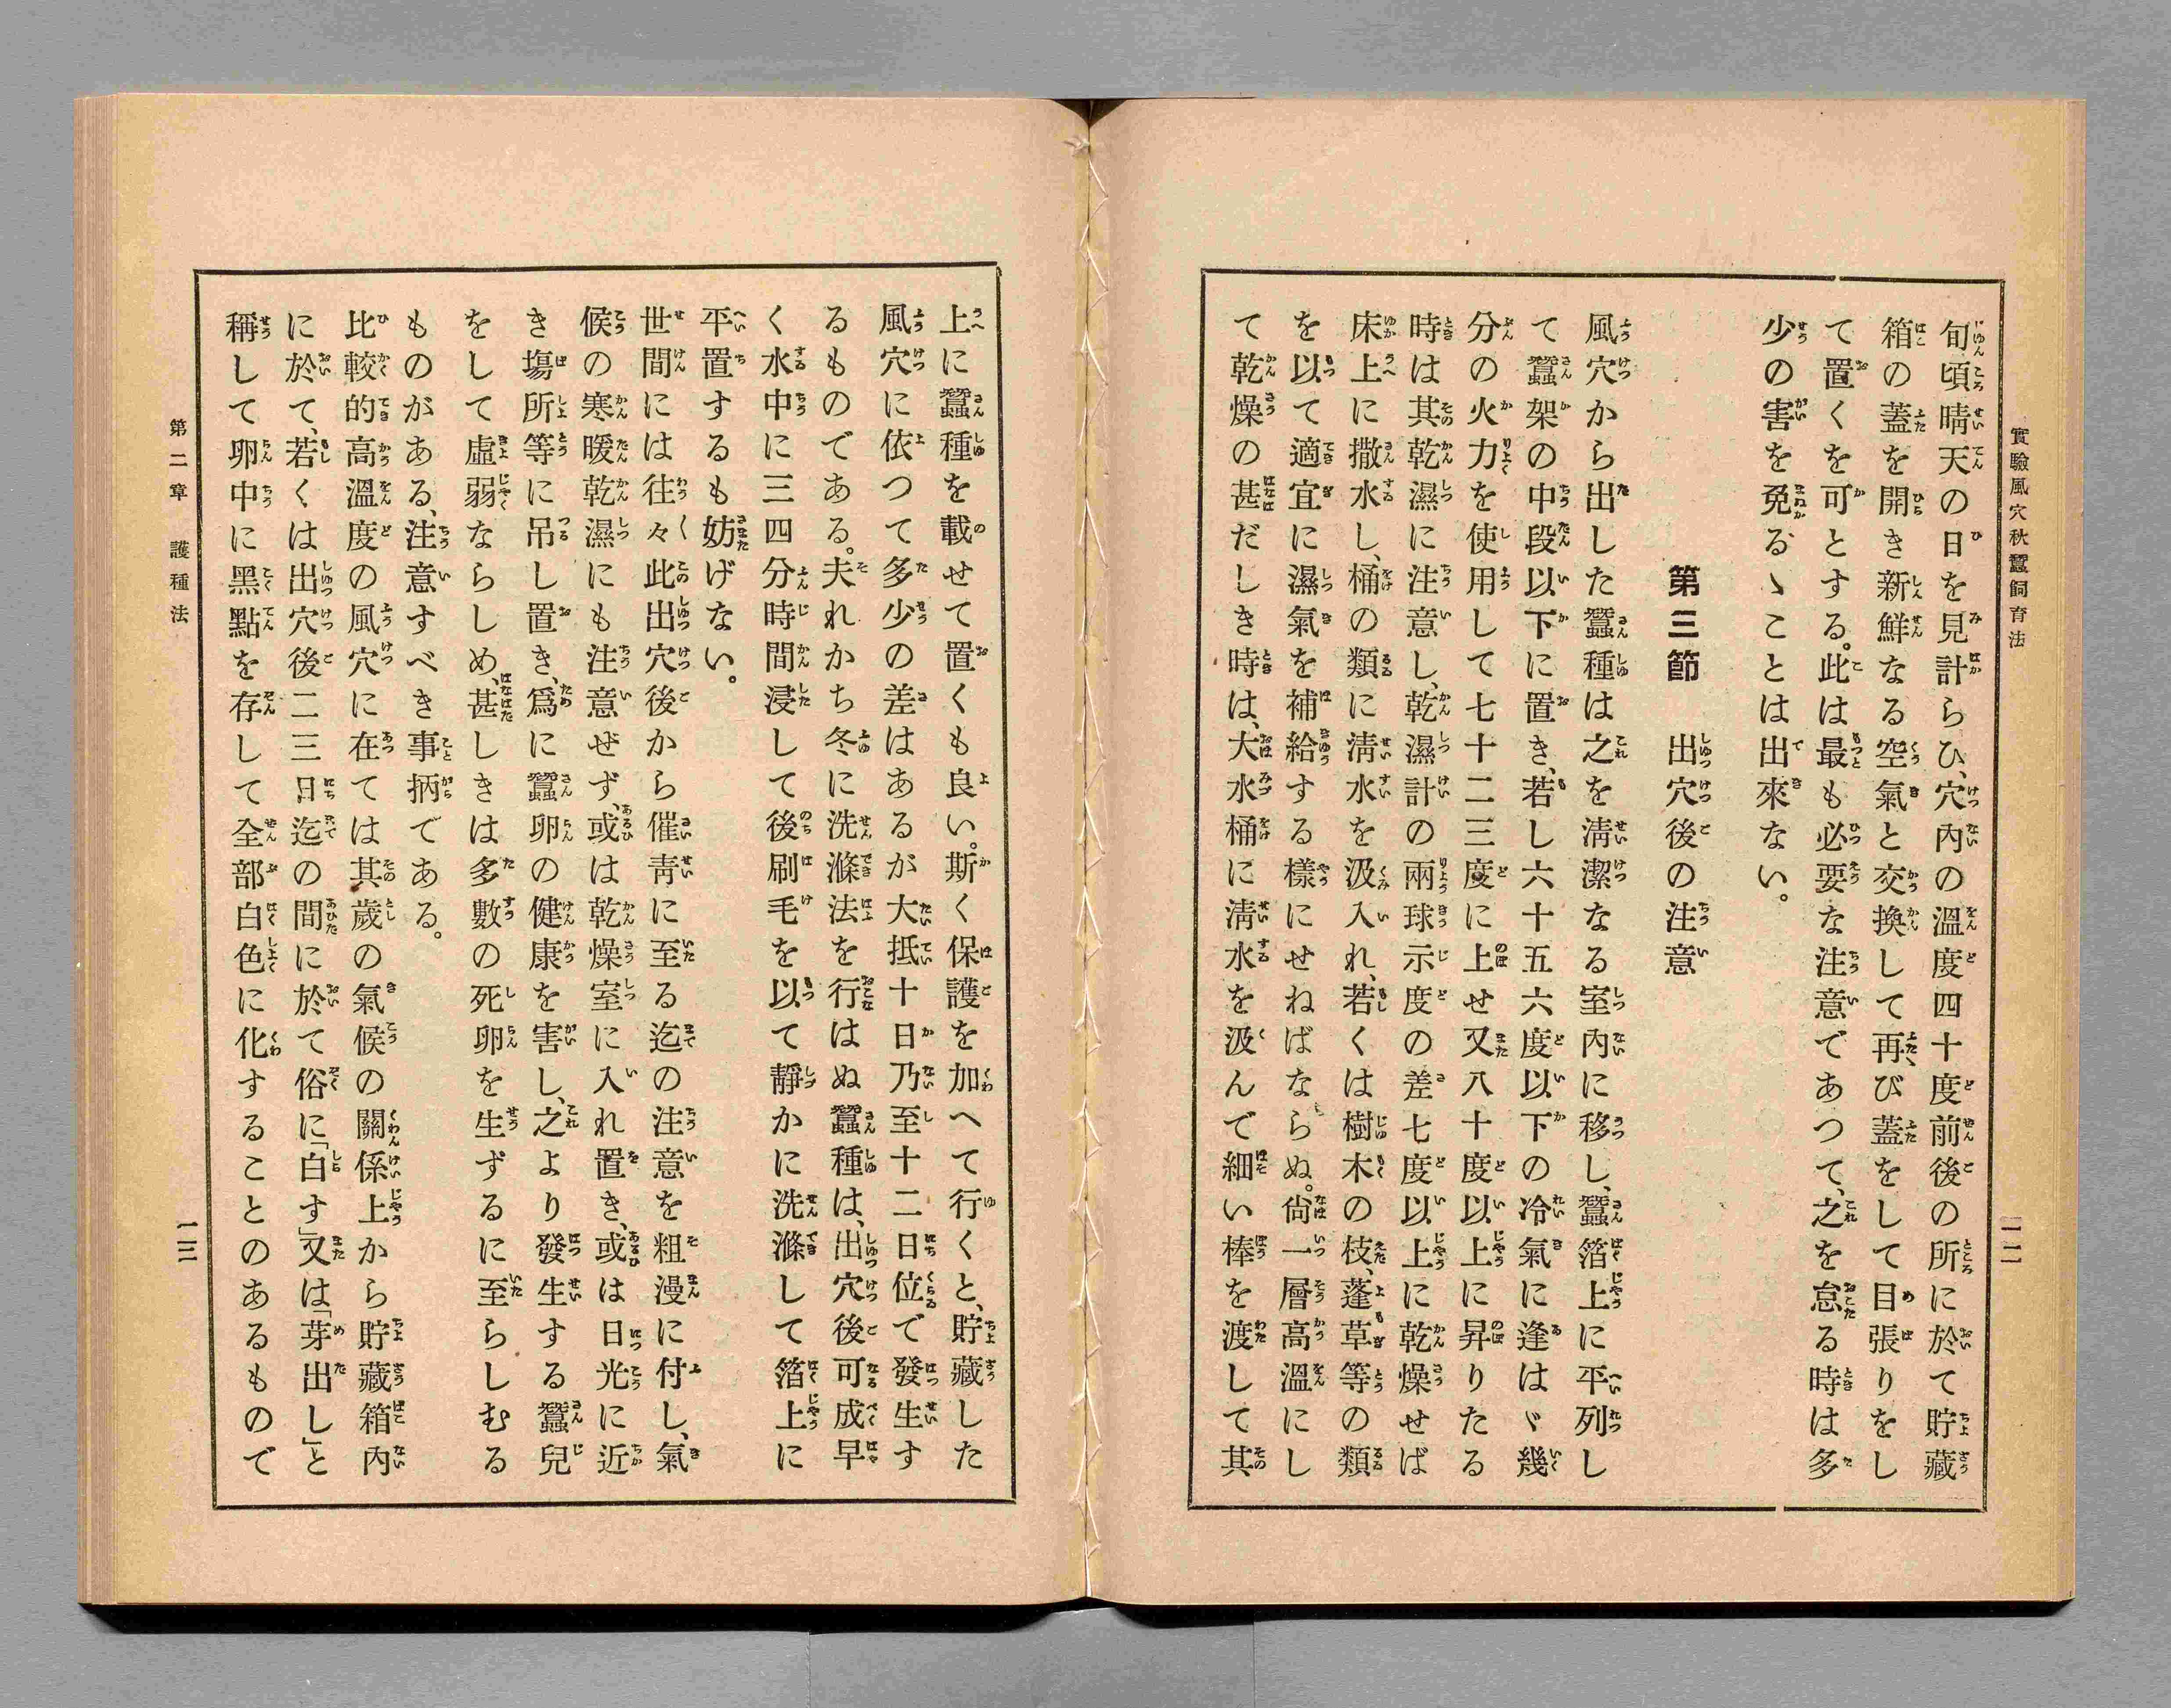 實驗風穴秋蠶飼育法
一二
旬頃晴天の日を見計らひ、穴內の溫度四十度前後の所に於て貯藏
箱の蓋を開き新鮮なる空氣と交換して再び蓋をして目張りをし
て置くを可とする。此は最も必要な注意であつて、之を怠る時は多
少の害を免るゝことは出來ない。
第三節　出穴後の注意
風穴から出した蠶種は之を淸潔なる室內に移し、蠶箔上に平列し
て蠶架の中段以下に置き、若し六十五六度以下の冷氣に逢はゞ幾
分の火力を使用して七十二三度に上せ又八十度以上に昇りたる
時は其乾濕に注意し、乾濕計の兩球示度の差七度以上に乾燥せば
床上に撒水し、桶の類に淸水を汲入れ、若くは樹木の枝、蓬草等の類
を以て適宜に濕氣を補給する樣にせねばならぬ。尙一層高溫にし
て乾燥の甚だしき時は、大水桶に淸水を汲んで細い棒を渡して其
上に蠶種を載せて置くも良い。斯く保護を加へて行くと、貯藏した
風穴に依つて多少の差はあるが大抵十日乃至十二日位で發生す
るものである。夫れかち冬に洗滌法を行はぬ蠶種は、出穴後可成早
く水中に三四分時間浸して後刷毛を以て靜かに洗滌して箔上に
平置するも妨げない。
世間には往々此出穴後から催靑に至る迄の注意を粗漫に付し、氣
候の寒暖乾濕にも注意せず、或は乾燥室に入れ置き、或は日光に近
き塲所等に吊し置き、爲に蠶卵の健康を害し、之より發生する蠶兒
をして虛弱ならしめ、甚しきは多數の死卵を生ずるに至らしむる
ものがある、注意すべき事柄である。
比較的高溫度の風穴に在ては其歲の氣候の關係上から貯藏箱內
に於て、若くは出穴後二三日迄の間に於て俗に「白す」又は「芽出し」と
稱して卵中に黑點を存して全部白色に化することのあるもので
第二章　護種法
一三